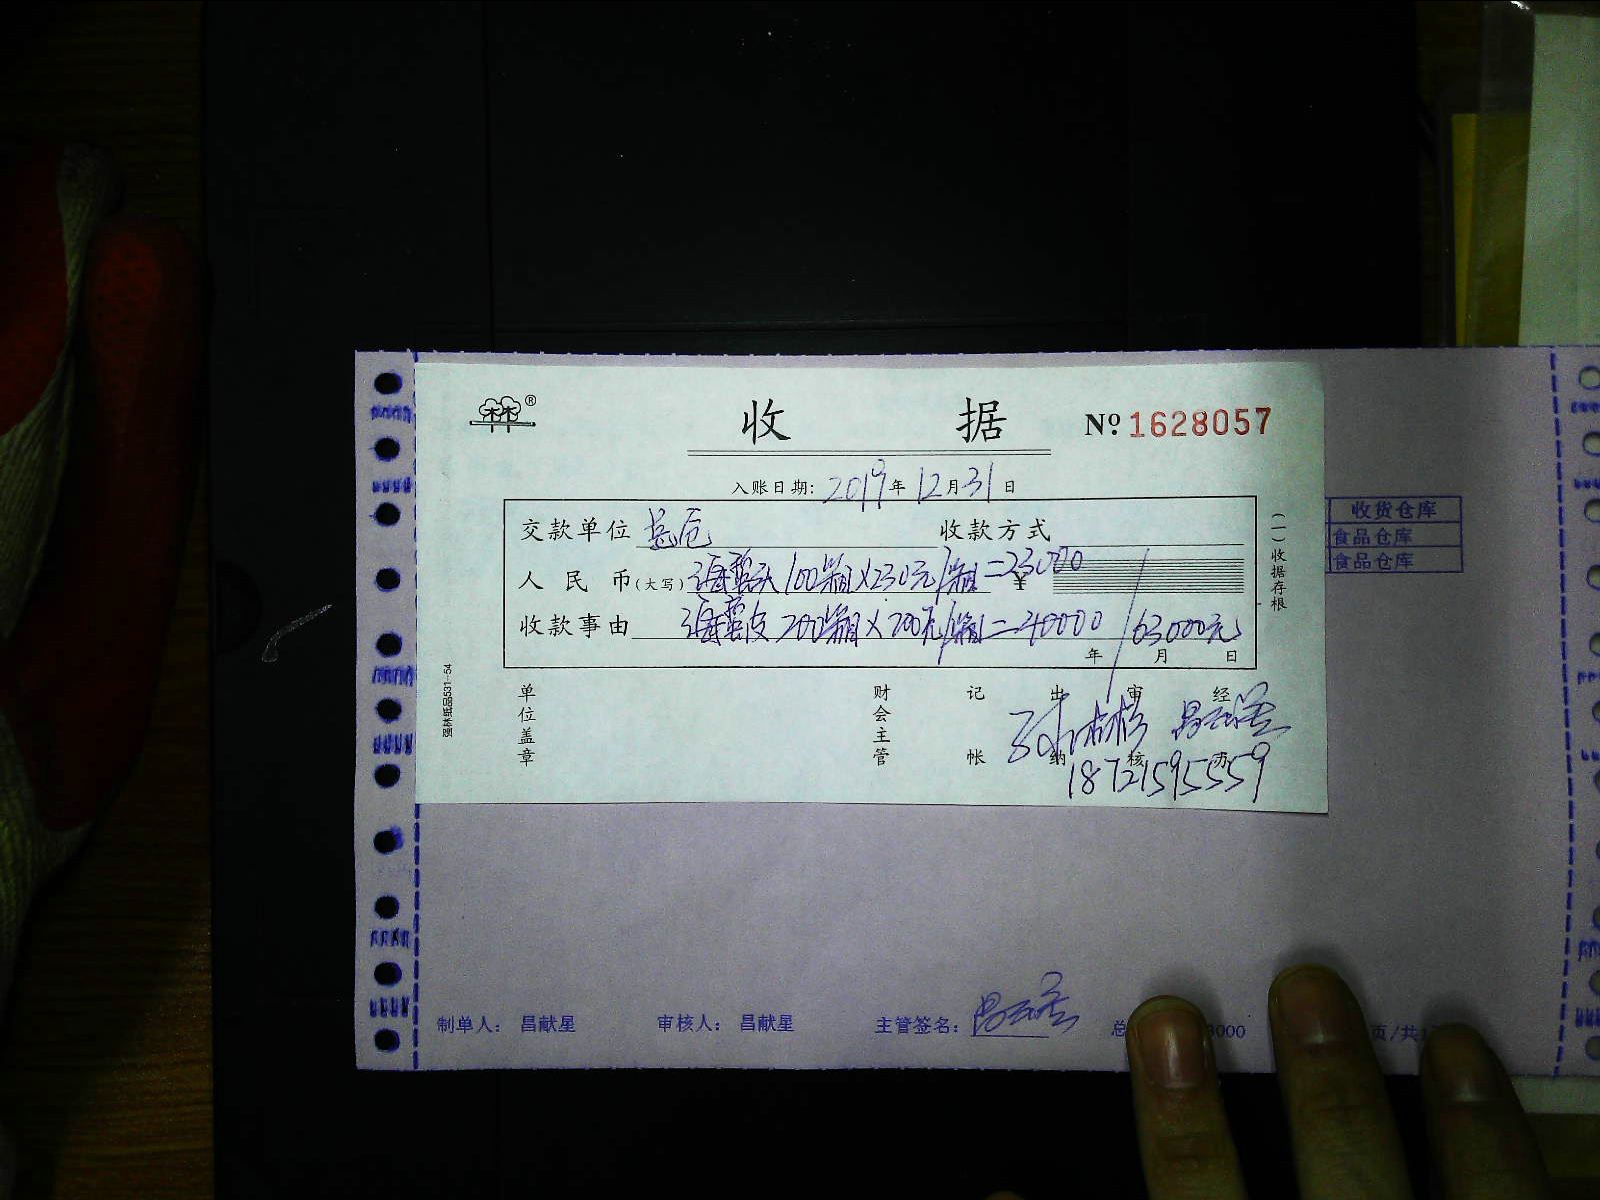 收 据 Nº 1628057
入账日期: 2019年12月31日
交款单位 收款方式
人民币(大写) 海蜇头100箱×230元/箱=23000 ¥
收款事由 海蜇皮200箱×200元/箱=40000 63000元
年 月 日
单位盖章 财会主管 记帐 出纳 审核 经办
18721595559
(一)收据存根
收货仓库
食品仓库
食品仓库
制单人: 昌献星 审核人: 昌献星 主管签名: 总 3000 页/共1